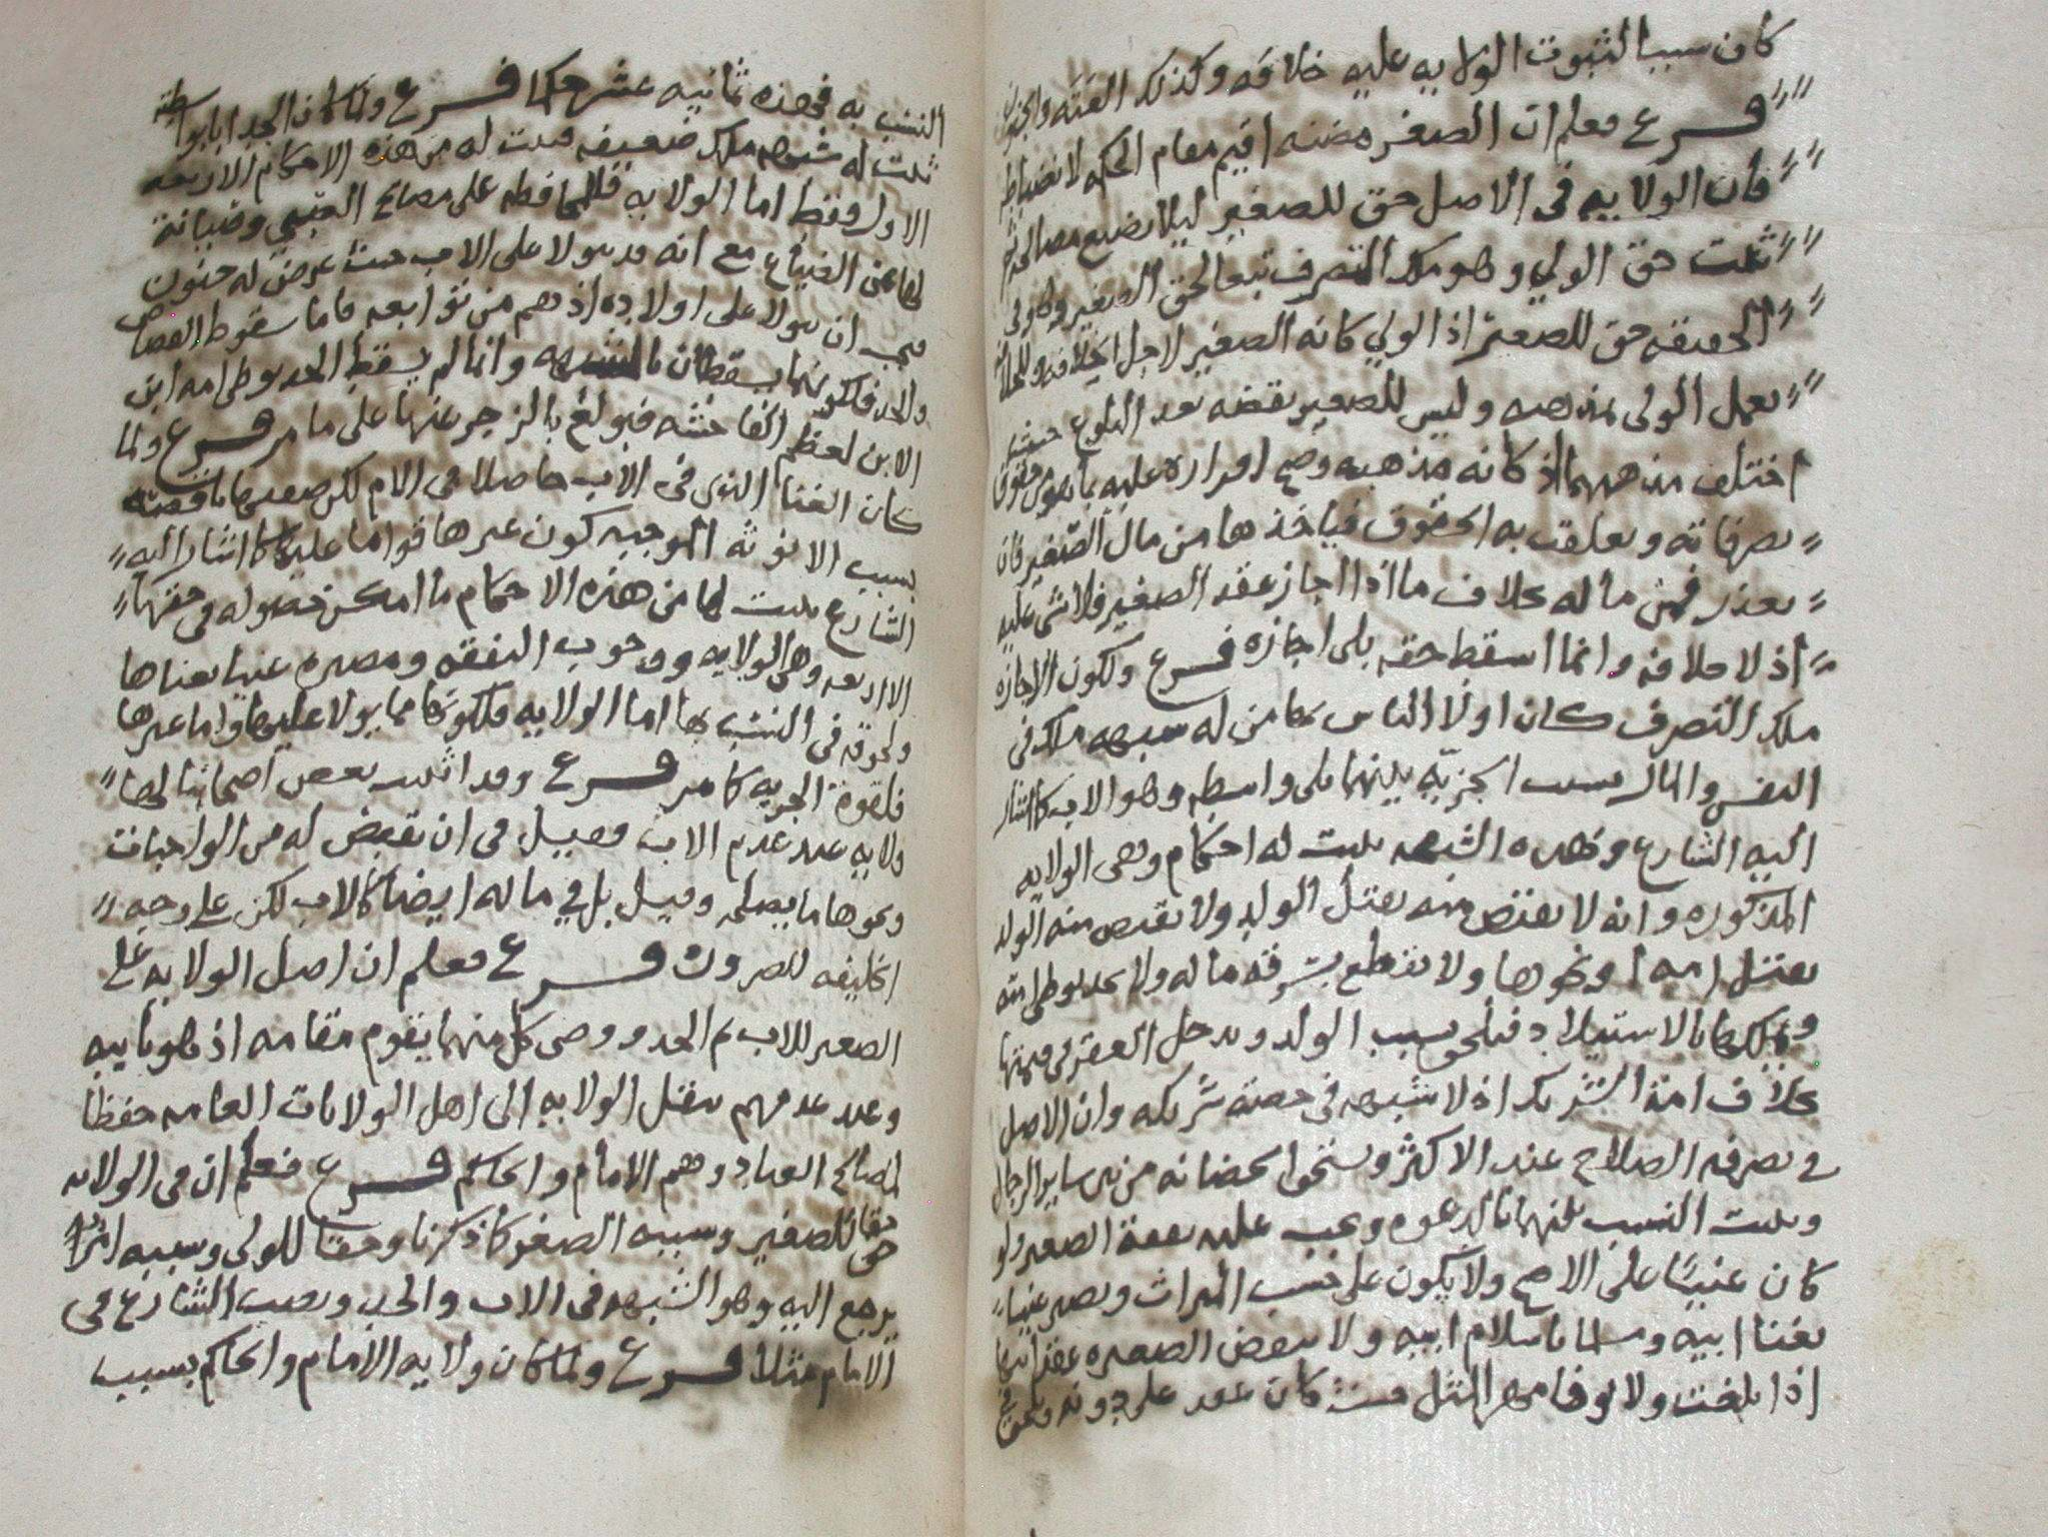 كان سببا لثبوت الولايه عليه خلافه وكذلك العته والجنون
فرع فعلم ان الصغر مضنه اقيم مقام الحكمه لانضباطه
فان الولايه في الاصل حق للصغير ليلا يضيع مصالحه ثم
ثبت حق الولي وهو ملك التصرف تبعا لحق الصغير وهو في
الحقيقه حق للصغير اذ الولي كانه الصغير لاجل الخلافه
يعمل الولي بمذهبه وليس للصغير نقضه بعد البلوغ حيث
اختلف مذهبهما اذ كانه مذهبه وصح اقراره عليه بما هو من حقوق
تصرفاته وتعلقت به الحقوق فياخذها من مال الصغير فان
تعذر فمن ماله بخلاف ما اذا اجاز عقد الصغير فلا شي عليه
اذ لا خلافه وانما اسقط حقه بلى اجازه فرع ولكون الاجازه
ملك التصرف كان اولا الناس بها من له شبهه ملك في
النفس والمال بسبب الجزيه بينهما بلى واسطه وهو الاب كما اشار
اليه الشارع وبهذه الشبهه ثبت له احكام وهي الولايه
المذكوره وانه لا يقتص منه بقتل الولد ولا يقتص منه الولد
بقتل امه او نحوها ولا يقطع بسرقه ماله ولا يحد بوطي امته
وتملكها بالاستيلاد فيلحق بسبب الولد ويدخل العقر في قيمتها
بخلاف امة الشريك اذ لا شبهه في حصة شريكه وان الاصل
في تصرفه الصلاح عند الاكثر ويستحق الحضانه من بين ساير الرجال
ويثبت النسب بينهما بالدعوه ويجب عليه نفقة الصغير ولو
كان غنيا على الاصح ولا يكون على حسب الميراث ويصير غنيا
بغنا ابيه ومسلما باسلام ابيه ولا ينقض الصغيره عقد ابيها
اذا بلغت ولا يوفا مهر المثل حيث كان عقد على دونه ويلحق في
النسب به فهذه ثمانيه عشر حكما فرع ولما كان الجد ابا بواسطه
ثبت له شبهه ملك ضعيفه فثبت له من هذه الاحكام الاربعه
الاول فقط اما الولايه فللمحافظه على مصالح اليتيم وصيانة
لها عن الضياع مع انه قد يولا على الاب حيث عرض له جنون
فيجب ان يولا على اولاده اذ هم من توابعه فاما سقوط القصاص
والحد فلكونهما يسقطان بالشبهه وانما لم يسقط الحد بوطي امه ابن
الابن لعظم الفاحشه فبولغ بالزجر عنها على ما مر فرع ولما
كان الغنا الذي في الاب حاصلا في الام لكن صفتها ناقصه
بسبب الانوثه الموجبه كون غيرها قواما عليها كما اشار اليه
الشارع ثبت لها من هذه الاحكام ما امكن حصوله في حقها
الاربعه وهي الولايه ووجوب النفقه ومصيره غنيا بغناها
ولحوقه في النسب بها اما الولايه فلكونها مما يولا عليها واما غيرها
فلقوة الجزيه كما مر فرع وقد اثبت بعض اصحابنا لها
ولايه عند عدم الاب فقيل في ان تقبض له من الواجبات
ونحوها ما يصلحه وقيل بل في ماله ايضا كالاب لكن على وجه
الخليفه للضروره فرع فعلم ان اصل الولايه على
الصغير للاب ثم الجد ووصي كل منهما يقوم مقامه اذ هو نايبه
وعند عدمهم ينتقل الولايه الى اهل الولايات العامه حفظا
لمصالح العباد وهم الامام والحاكم فرع فعلم ان في الولايه
حقا للصغير وسببه الصغر كما ذكرنا وحقا للولي وسببه امر
يرجع اليه وهو الشبهه في الاب والجد ونصب الشارع في
الامام مثلا فرع ولما كان ولايه الامام والحاكم بسبب